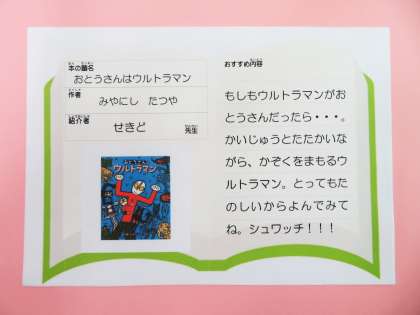 本の題名
おとうさんはウルトラマン
作者
みやにし　たつや
紹介者
せきど　先生
おとうさんは
ウルトラマン
おすすめ内容
もしもウルトラマンがお
とうさんだったら・・・。
かいじゅうとたたかいな
がら、かぞくをまもるウ
ルトラマン。とってもた
のしいからよんでみて
ね。シュワッチ！！！